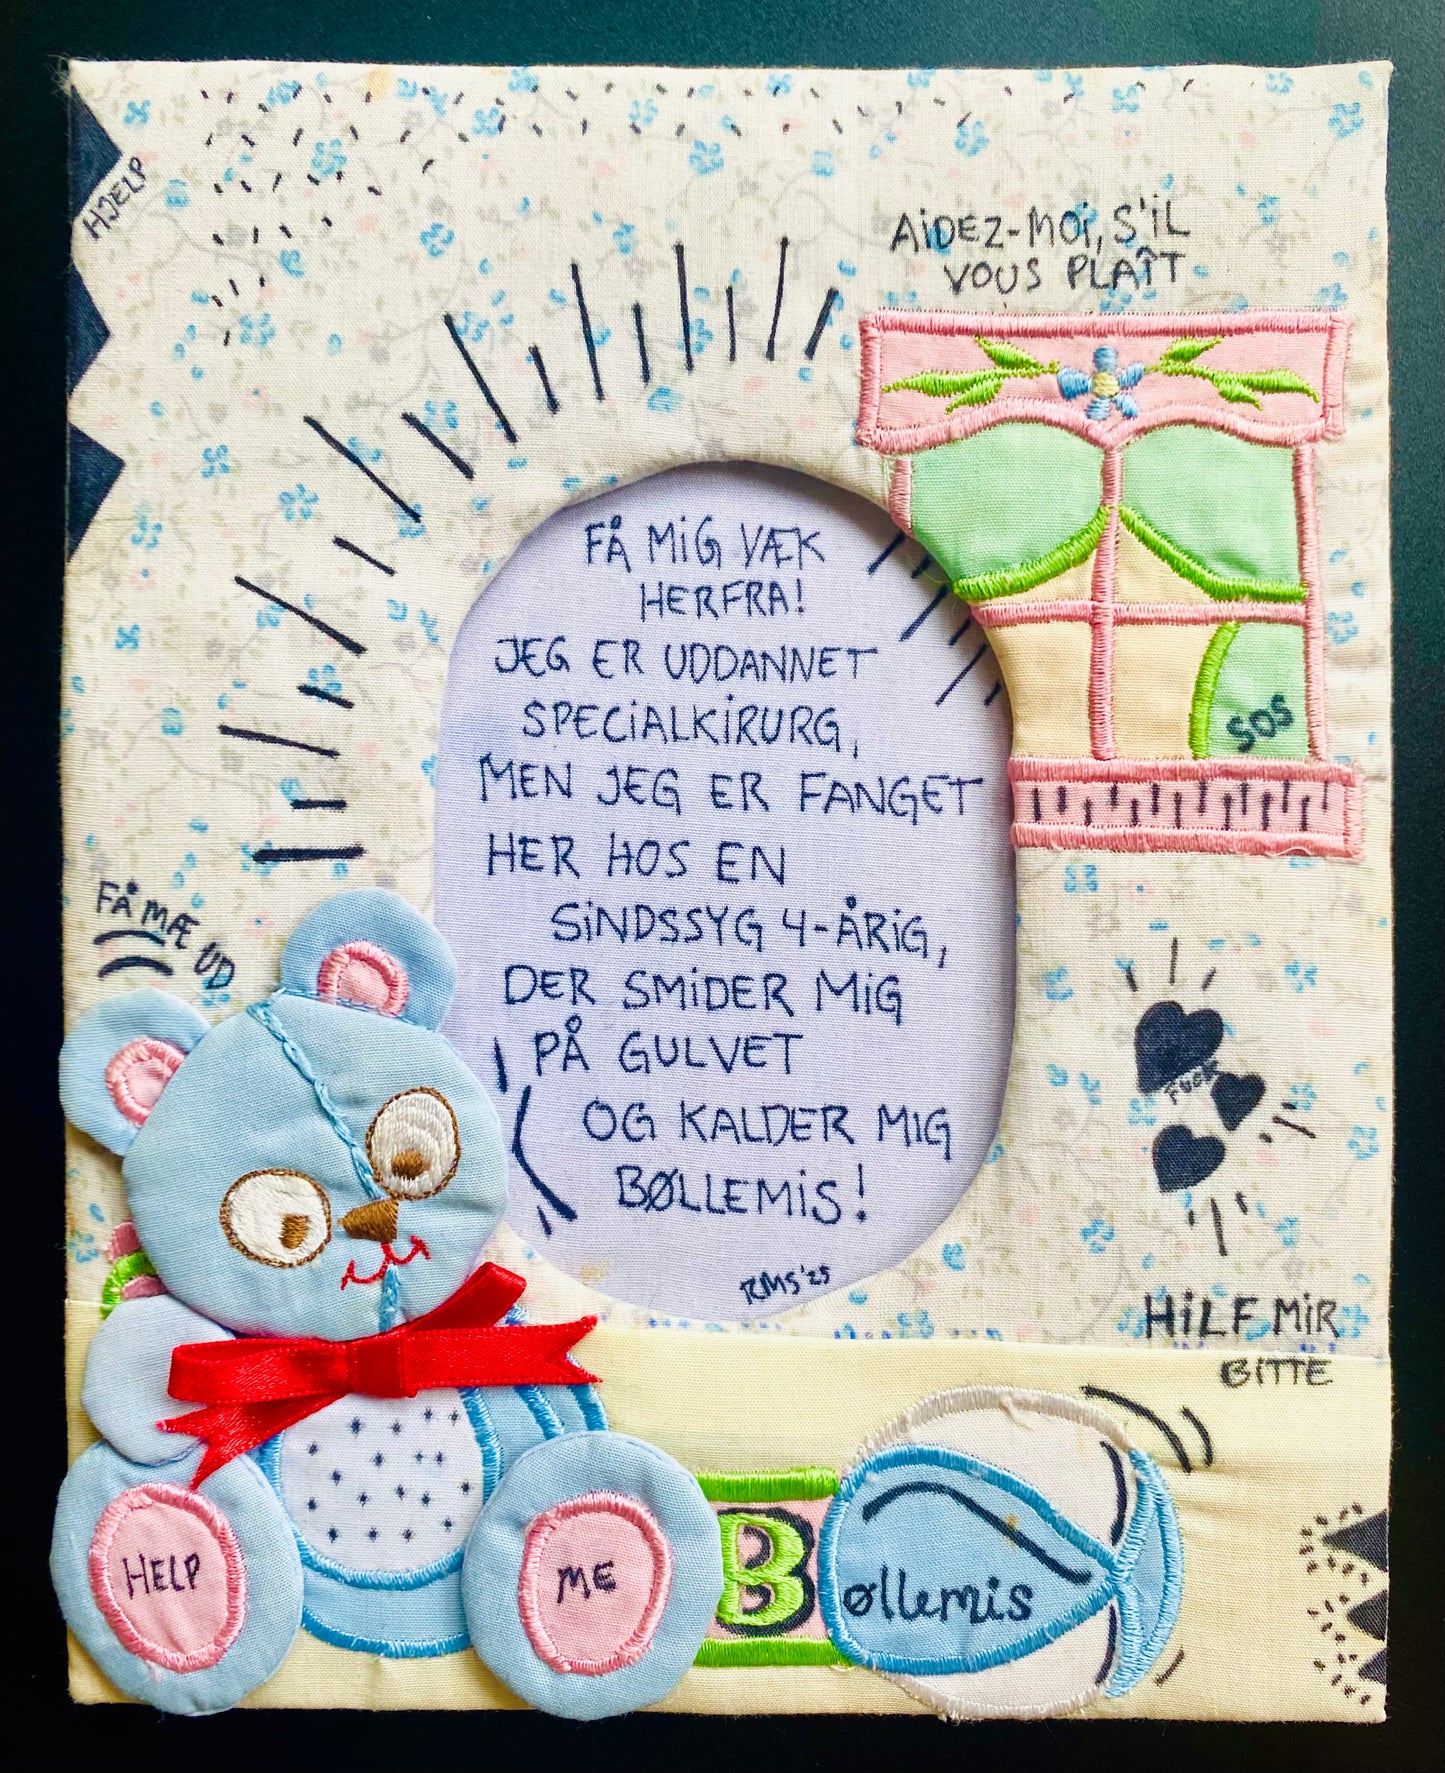 HJELP
AIDEZ-MOI, S'IL
VOUS PLAÎT
FÅ MIG VÆK
HERFRA!
JEG ER UDDANNET
SPECIALKIRURG,
MEN JEG ER FANGET
HER HOS EN
SINDSSYG 4-ÅRIG,
DER SMIDER MIG
PÅ GULVET
OG KALDER MIG
BØLLEMIS!
RMS'25
SOS
FÅ MÆ UD
FUCK
HILF MIR
BITTE
HELP ME
Bøllemis